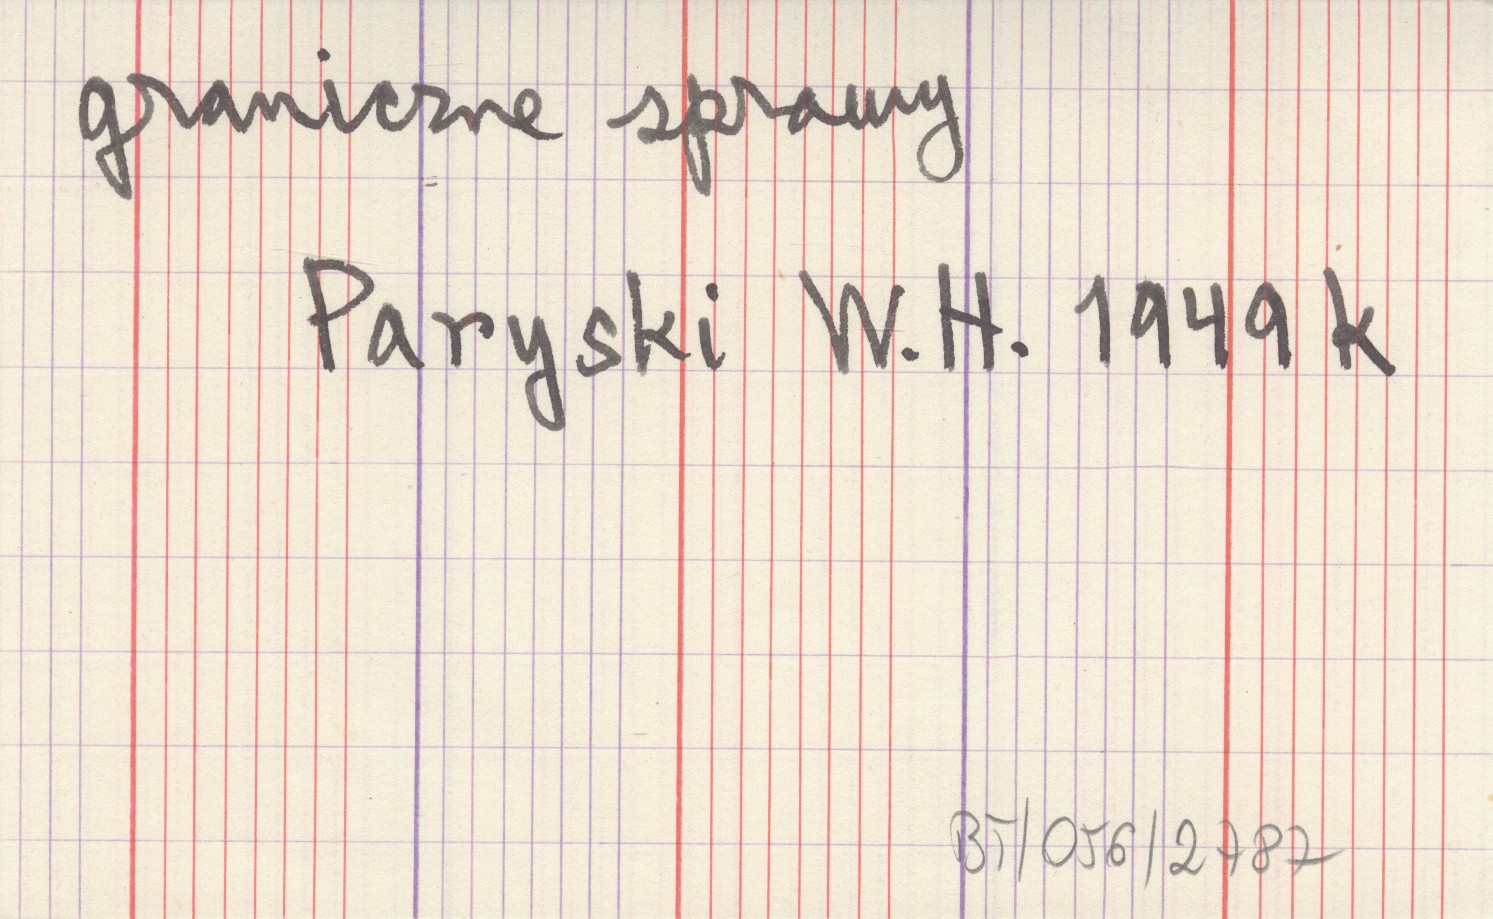 graniczne sprawy
Paryski W.H. 1949 k
BT/056/2787